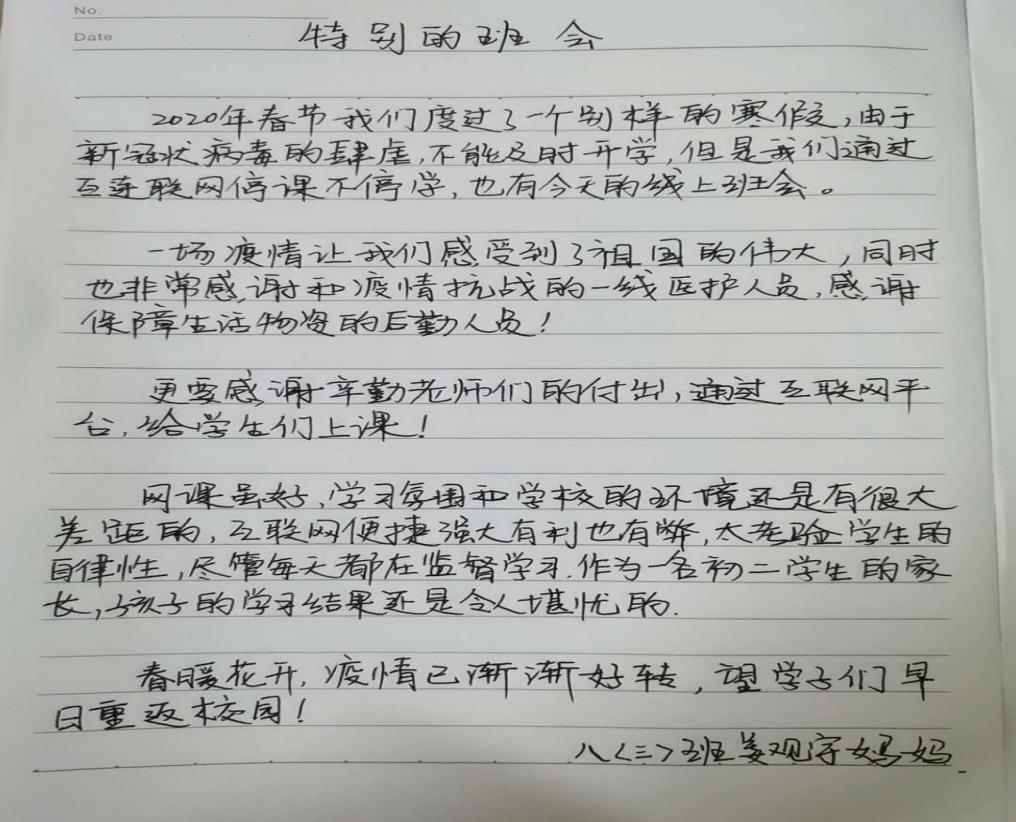 No.
Date
特别的班会
2020年春节我们度过了一个别样的寒假,由于
新冠状病毒的肆虐,不能及时开学,但是我们通过
互连联网停课不停学,也有今天的线上班会。
一场疫情让我们感受到了祖国的伟大,同时
也非常感谢和疫情抗战的一线医护人员,感谢
保障生活物资的后勤人员!
更要感谢辛勤老师们的付出,通过互联网平
台,给学生们上课!
网课虽好,学习氛围和学校的环境还是有很大
差距的,互联网便捷强大有利也有弊,太考验学生的
自律性,尽管每天都在监督学习.作为一名初二学生的家
长,孩子的学习结果还是令人堪忧的.
春暖花开,疫情已渐渐好转,望学子们早
日重返校园!
八<三>班姜观宇妈妈